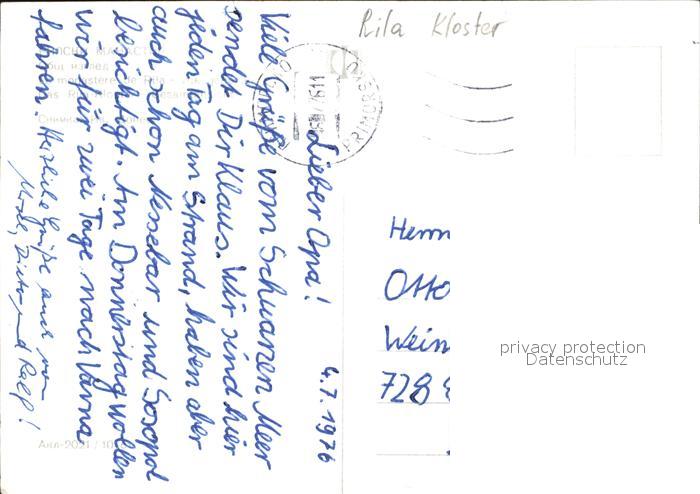 Rila Kloster
4.7.1976
Lieber Opa!
Viele Grüße vom Schwarzen Meer
sendet Dir Klaus. Wir sind hier
jeden Tag am Strand, haben aber
auch schon Nessebar und Sosopol
besichtigt. Am Donnerstag wollen
wir für zwei Tage nach Varna
fahren. Herzliche Grüße auch von
Herrn
Otto
Wein
728
PRIMORSKO
privacy protection
Datenschutz